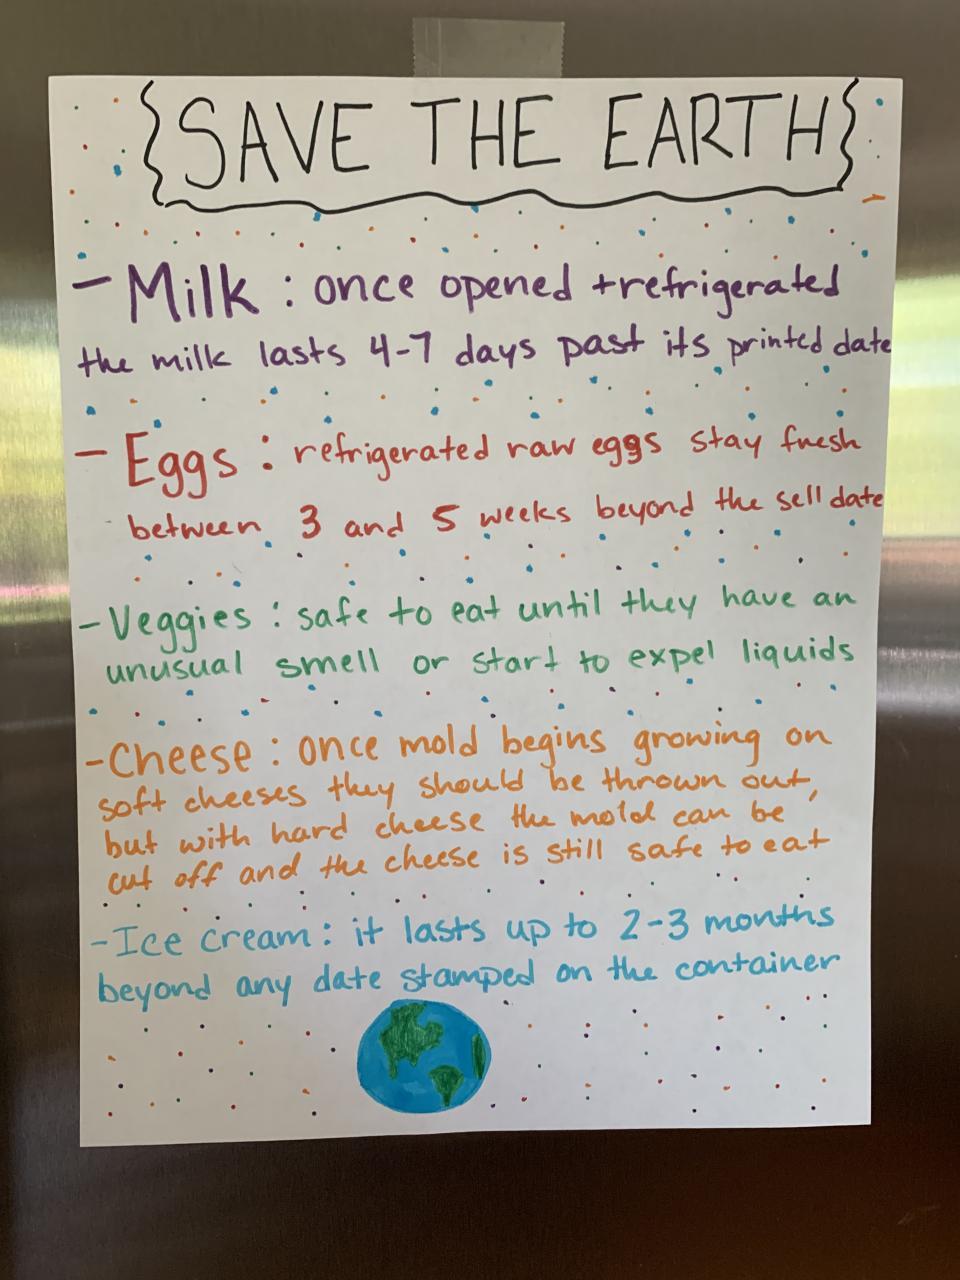 SAVE THE EARTH
- Milk : once opened + refrigerated
the milk lasts 4-7 days past its printed date
- Eggs : refrigerated raw eggs stay fresh
between 3 and 5 weeks beyond the sell date
- Veggies : safe to eat until they have an
unusual smell or start to expel liquids
- Cheese : once mold begins growing on
soft cheeses they should be thrown out,
but with hard cheese the mold can be
cut off and the cheese is still safe to eat
- Ice cream : it lasts up to 2-3 months
beyond any date stamped on the container